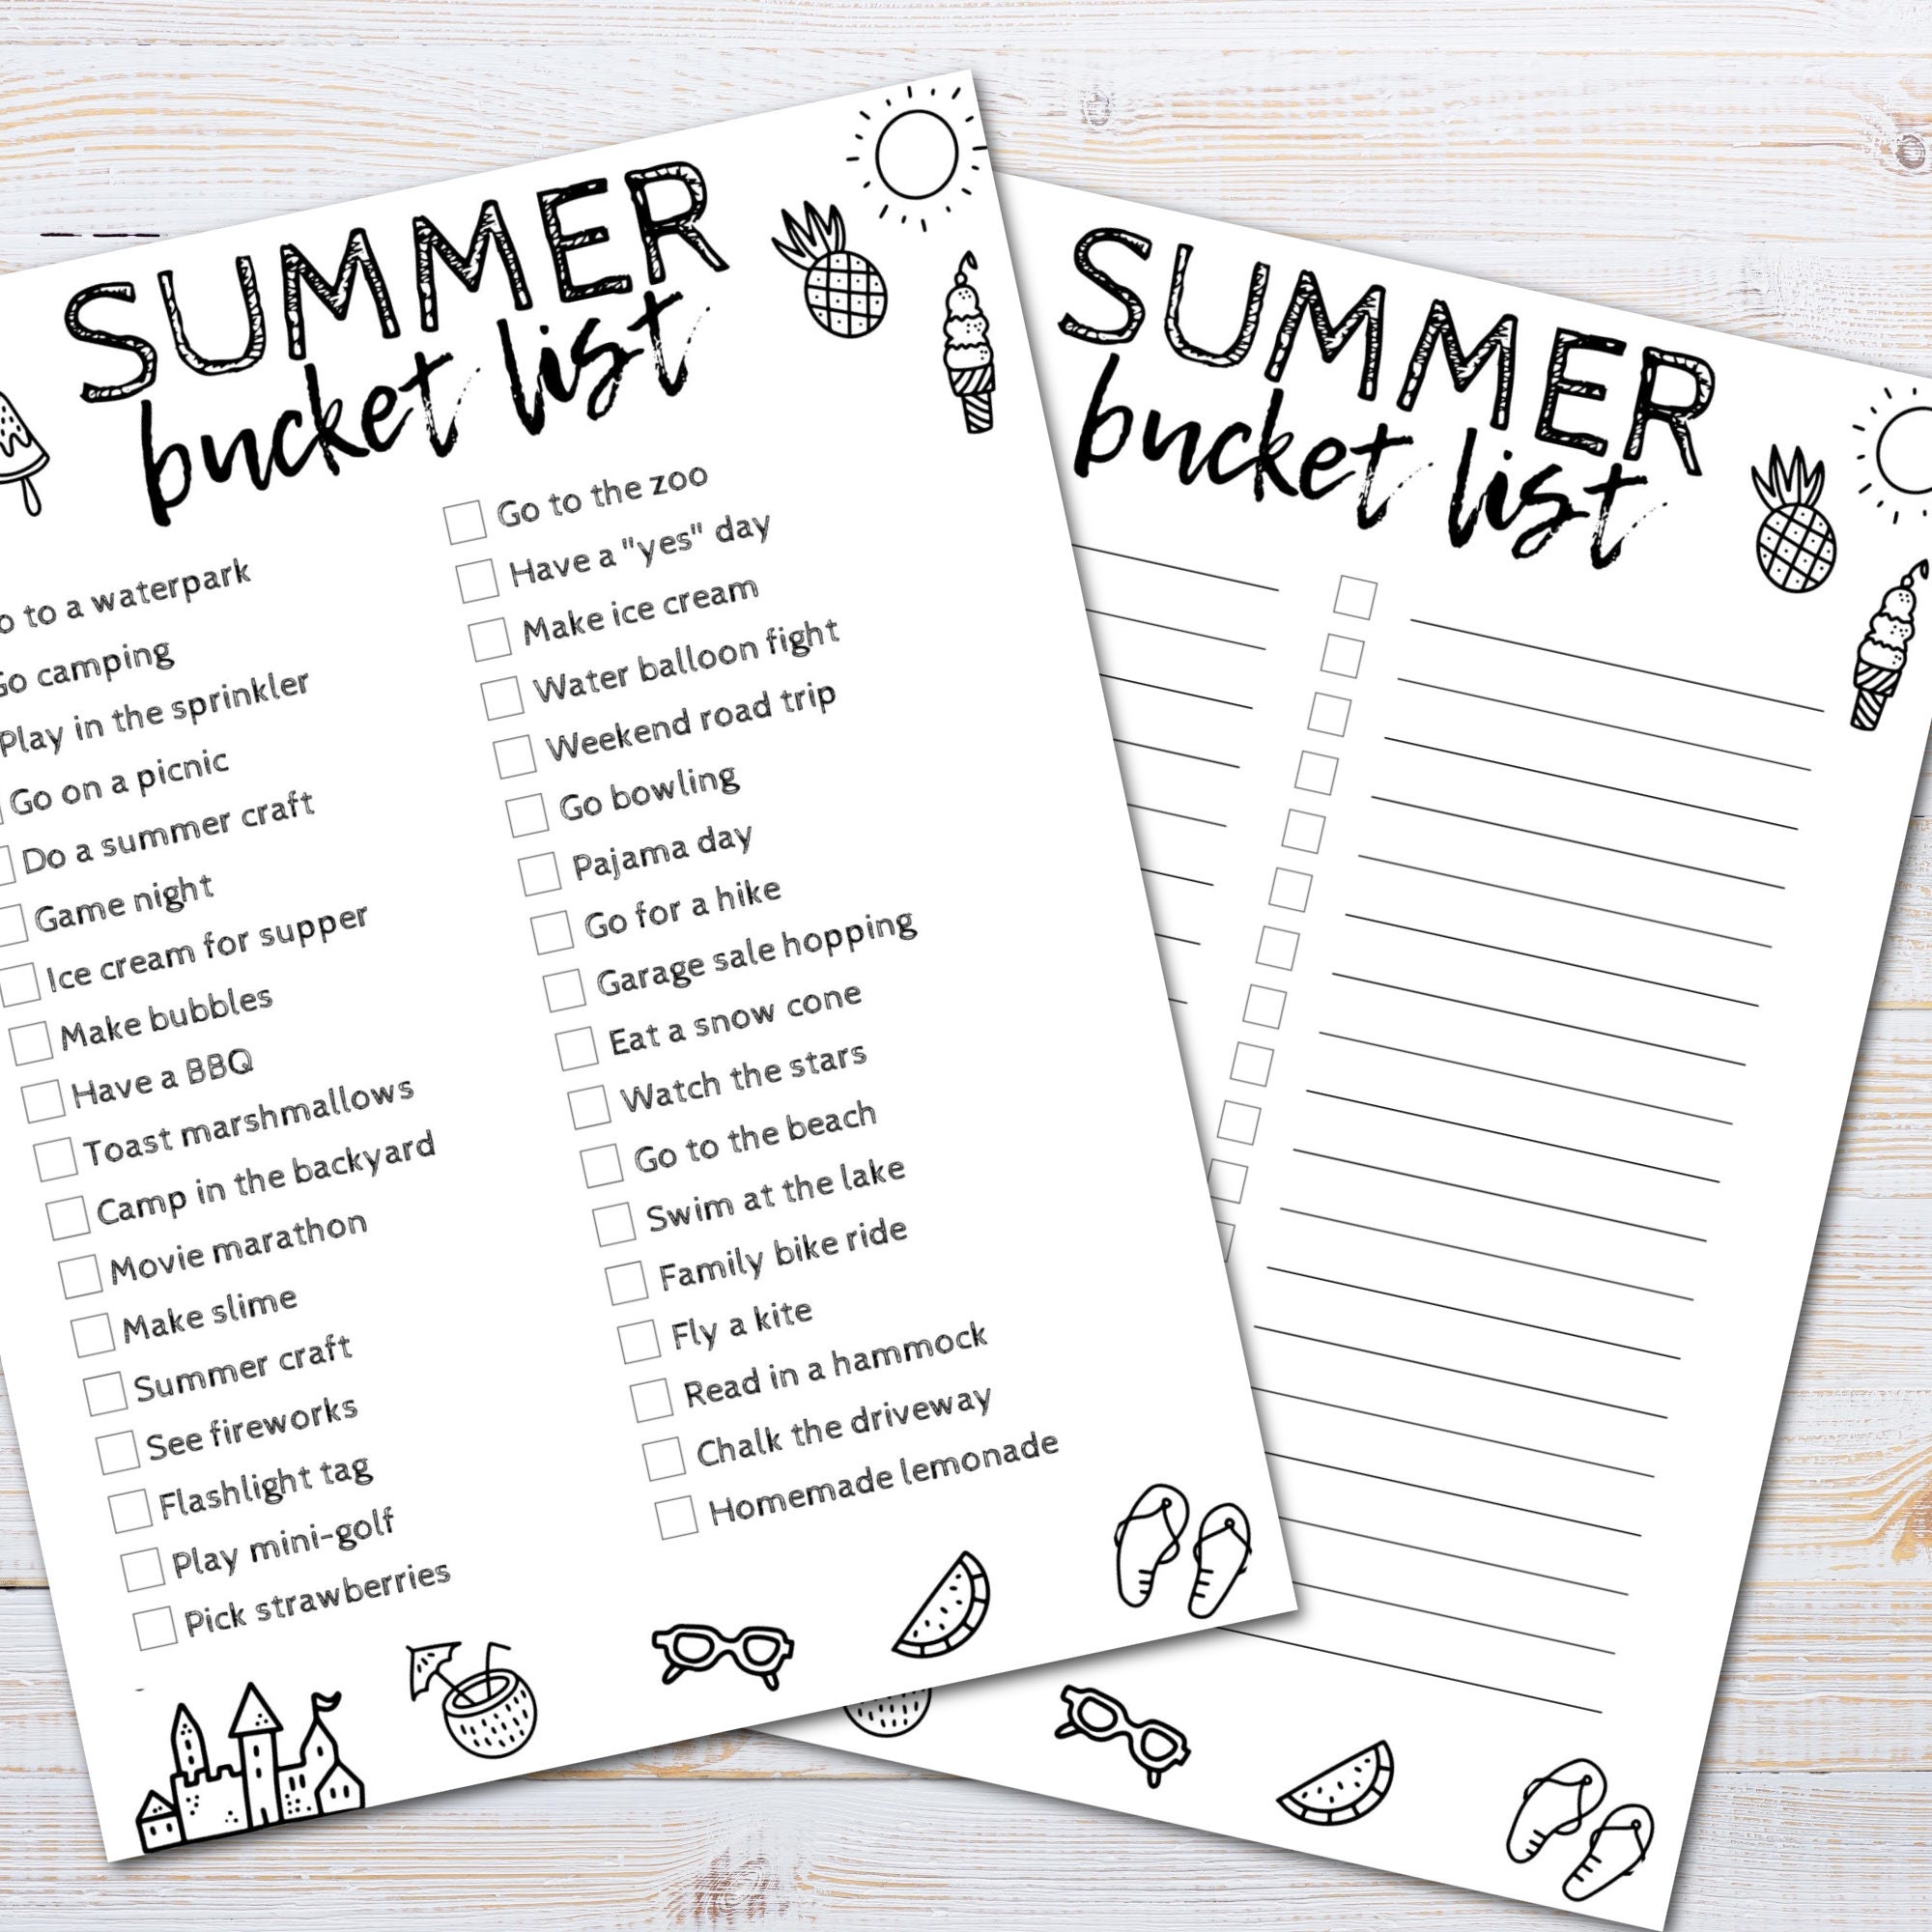 SUMMER
bucket list
o to a waterpark
Go camping
Play in the sprinkler
Go on a picnic
Do a summer craft
Game night
Ice cream for supper
Make bubbles
Have a BBQ
Toast marshmallows
Camp in the backyard
Movie marathon
Make slime
Summer craft
See fireworks
Flashlight tag
Play mini-golf
Pick strawberries
Go to the zoo
Have a "yes" day
Make ice cream
Water balloon fight
Weekend road trip
Go bowling
Pajama day
Go for a hike
Garage sale hopping
Eat a snow cone
Watch the stars
Go to the beach
Swim at the lake
Family bike ride
Fly a kite
Read in a hammock
Chalk the driveway
Homemade lemonade
SUMMER
bucket list